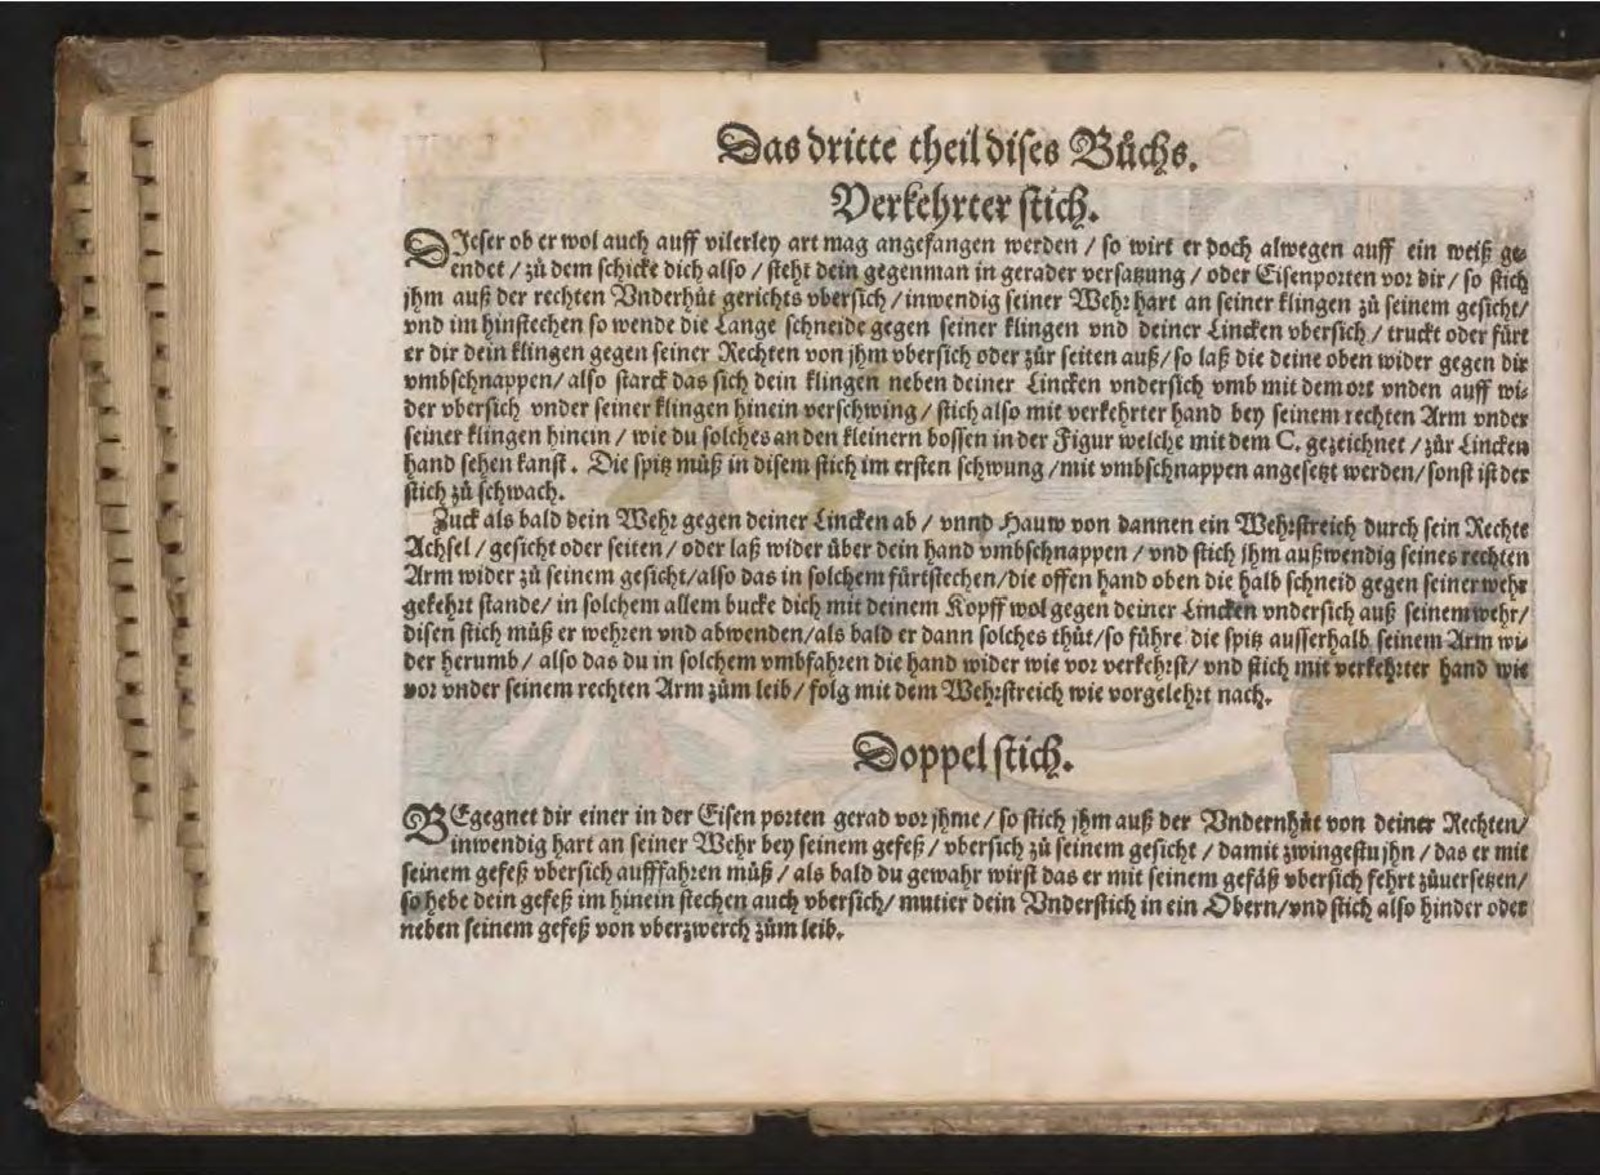 Das dritte theil dises Bůchs.
Verkehrter stich.
DIeser ob er wol auch auff vilerley art mag angefangen werden / so wirt er doch alwegen auff ein weiß ge-
endet / zů dem schicke dich also / steht dein gegenman in gerader versatzung / oder Eisenporten vor dir / so stich
jhm auß der rechten Vnderhůt gerichts vbersich / inwendig seiner Wehr hart an seiner klingen zů seinem gesicht /
vnd im hinstechen so wende die Lange schneide gegen seiner klingen vnd deiner Lincken vbersich / truckt oder fürt
er dir dein klingen gegen seiner Rechten von jhm vbersich oder zůr seiten auß / so laß die deine oben wider gegen dir
vmbschnappen / also starck das sich dein klingen neben deiner Lincken vndersich vmb mit dem ort vnden auff wi-
der vbersich vnder seiner klingen hinein verschwing / stich also mit verkehrter hand bey seinem rechten Arm vnder
seiner klingen hinein / wie du solches an den kleinern bossen in der Figur welche mit dem C. gezeichnet / zůr Lincken
hand sehen kanst. Die spitz můß in disem stich im ersten schwung / mit vmbschnappen angesetzt werden / sonst ist der
stich zů schwach.
Zuck als bald dein Wehr gegen deiner Lincken ab / vnnd Hauw von dannen ein Wehrstreich durch sein Rechte
Achsel / gesicht oder seiten / oder laß wider über dein hand vmbschnappen / vnd stich jhm außwendig seines rechten
Arm wider zů seinem gesicht / also das in solchem fürtstechen / die offen hand oben die halb schneid gegen seiner wehr
gekehrt stande / in solchem allem bucke dich mit deinem Kopff wol gegen deiner Lincken vndersich auß seinem wehr /
disen stich můß er wehren vnd abwenden / als bald er dann solches thůt / so führe die spitz ausserhalb seinem Arm wi-
der herumb / also das du in solchem vmbfahren die hand wider wie vor verkehrst / vnd stich mit verkehrter hand wie
vor vnder seinem rechten Arm zům leib / folg mit dem Wehrstreich wie vorgelehrt nach.
Doppel stich.
BEgegnet dir einer in der Eisen porten gerad vor jhme / so stich jhm auß der Vndernhůt von deiner Rechten /
inwendig hart an seiner Wehr bey seinem gefeß / vbersich zů seinem gesicht / damit zwingestu jhn / das er mit
seinem gefeß vbersich aufffahren můß / als bald du gewahr wirst das er mit seinem gefäß vbersich fehrt zůuersetzen /
so hebe dein gefeß im hinein stechen auch vbersich / mutier dein Vnderstich in ein Obern / vnd stich also hinder oder
neben seinem gefeß von vberzwerch zům leib.